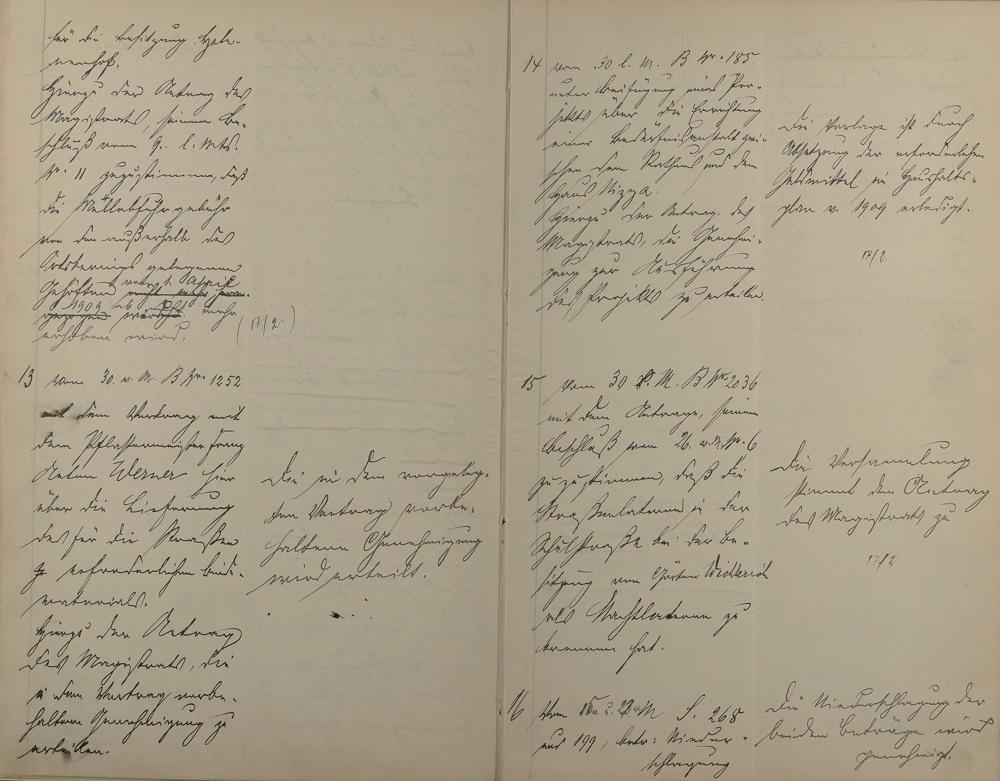 für die Besitzung Hele-
nenhof.
Hierzu der Antrag des
Magistrats, seinem Be-
schluß vom 9. l. Mts.
Nr. 11 zuzustimmen, daß
die Müllabfuhrgebühr
von den außerhalb des
Ortsberings gelegenen
Gehöften vom 1. April
1909 ab nicht mehr
erhoben wird.
(17/2.)
13 vom 30. v. M. B Nr. 1252
mit dem Vertrag mit
dem Pflastermeister Franz
Anton Werner hier
über die Lieferung
des für die Straßen
erforderlichen Binde-
materials.
Hierzu der Antrag
des Magistrats, die
in dem Vertrag vorbe-
haltene Genehmigung zu
erteilen.
Die in dem vorgeleg-
ten Vertrag vorbe-
haltene Genehmigung
wird erteilt.
14 vom 30 l. M. B Nr. 185.
unter Beifügung eines Pro-
jekts über die Errichtung
einer Bedürfnisanstalt zwi-
schen dem Rathaus und dem
Haus Nizza.
Hierzu der Antrag des
Magistrats, die Genehmi-
gung zur Ausführung
des Projekts zu erteilen.
Die Vorlage ist durch
Absetzung der erforderlichen
Geldmittel im Haushalts-
plan v. 1909 erledigt.
17/2
15 vom 30 M. B Nr. 2036
mit dem Antrage, seinem
Beschluß vom 26. v. M. 6
zuzustimmen, daß die
Straßenlaterne in der
Schulstraße bei der Be-
sitzung von Gärtner Wichterich
als Nachtlaterne zu
brennen hat.
Die Versammlung
stimmt dem Antrag
des Magistrats zu
17/2.
16 vom 15. u. 29. M S. 268
und 199, betr: Nieder-
schlagung
Die Niederschlagung der
beiden Beträge wird
genehmigt.